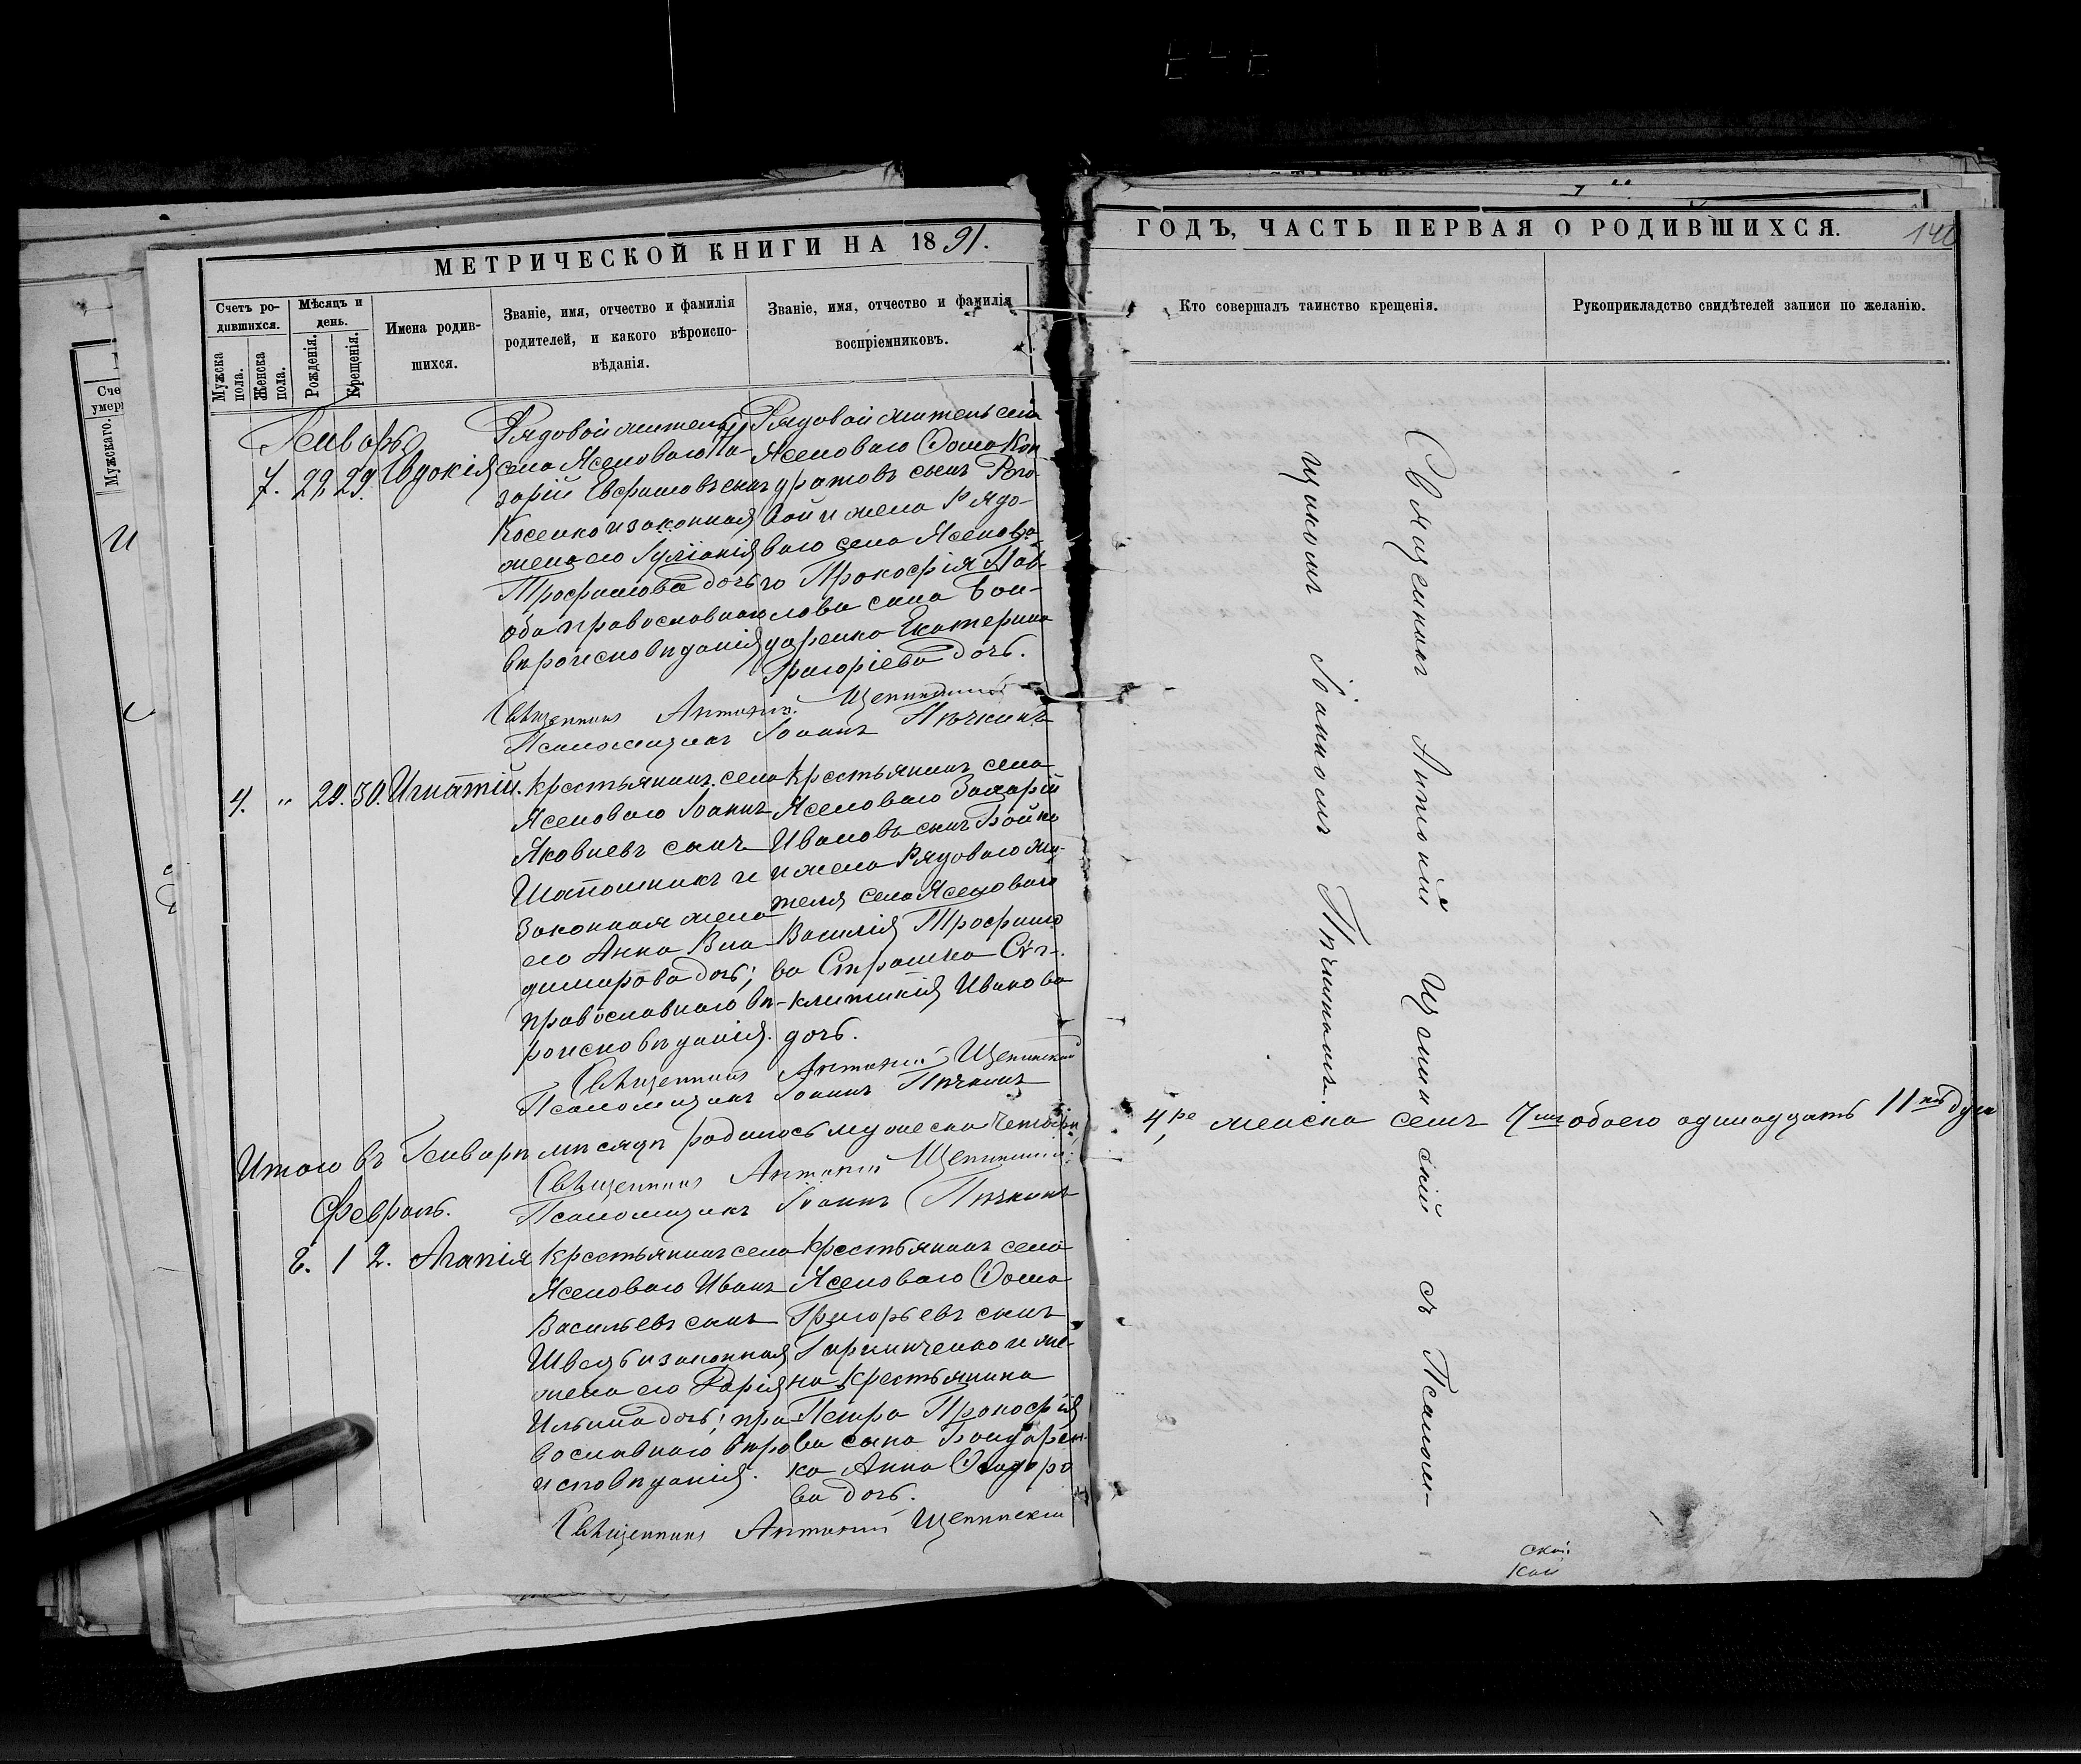 МЕТРИЧЕСКОЙ КНИГИ НА 1891.
ГОДЪ, ЧАСТЬ ПЕРВАЯ О РОДИВШИХСЯ.
Счетъ ро-
дившихся.
Мужска
пола.
Женска
пола.
Мѣсяцъ и
день.
Рожденія.
Крещенія.
Имена родив-
шихся.
Званіе, имя, отчество и фамилія
родителей, и какого вѣроиспо-
вѣданія.
Званіе, имя, отчество и фамилія
воспріемниковъ.
Кто совершалъ таинство крещенія.
Рукоприкладство свидѣтелей записи по желанію.
Сче
умер
Мужскаго.
Январь
7. 29. Евдокія
Рядовой житель
села Ясеноваго
законная
жена его Іуліанія
Трофимова дочь
оба православнаго
вѣроисповѣданія
Рядовой житель села
Ясеноваго Фома Кон-
дратовъ сынъ
вой и жена Рядо-
ваго села Ясенова-
го Прокофія Пав-
лова сына Бон-
даренка Екатерина
Григоріева дочь.
Священникъ Антоній
Псаломщикъ Іоаннъ Пѣчкинъ
4. " 29. 30. Игнатій.
Крестьянинъ села
Ясеноваго Іоаннъ
Яковлевъ сынъ
Шапошникъ и
законная жена
его Анна Вла-
димирова дочь;
православнаго вѣ-
роисповѣданія.
Крестьянинъ села
Ясеноваго Захарій
Ивановъ сынъ Бойко
и жена Рядоваго жи-
теля села Ясеноваго
Василія Трофимо
ва Сын-
клитикія Иванова
дочь.
Священникъ Антоній Щепинскій
Псаломщикъ Іоаннъ Пѣчкинъ
Итого въ Январѣ мѣсяцѣ родилось мужеска четыре
4ре женска семь 7мь обоего одинадцать 11ть душъ
Священникъ Антоній Щепинскій
Псаломщикъ Іоаннъ Пѣчкинъ
Февраль.
1 2. Агапія
Крестьянинъ села
Ясеноваго Иванъ
Васильевъ сынъ
Швець и законная
жена его Дарія
Ильина дочь; пра-
вославнаго вѣро
исповѣданія.
Крестьянинъ села
Ясеноваго Фома
Григорьевъ сынъ
и же-
на Крестьянина
Петра Прокофіе
ва сына Бондарен-
ка Анна Ѳеодоро
ва дочь.
Священникъ Антоній Щепинскій
Священникъ Антоній Щепинскій съ Псалом-
щикомъ Іоанномъ Пѣчкинымъ.